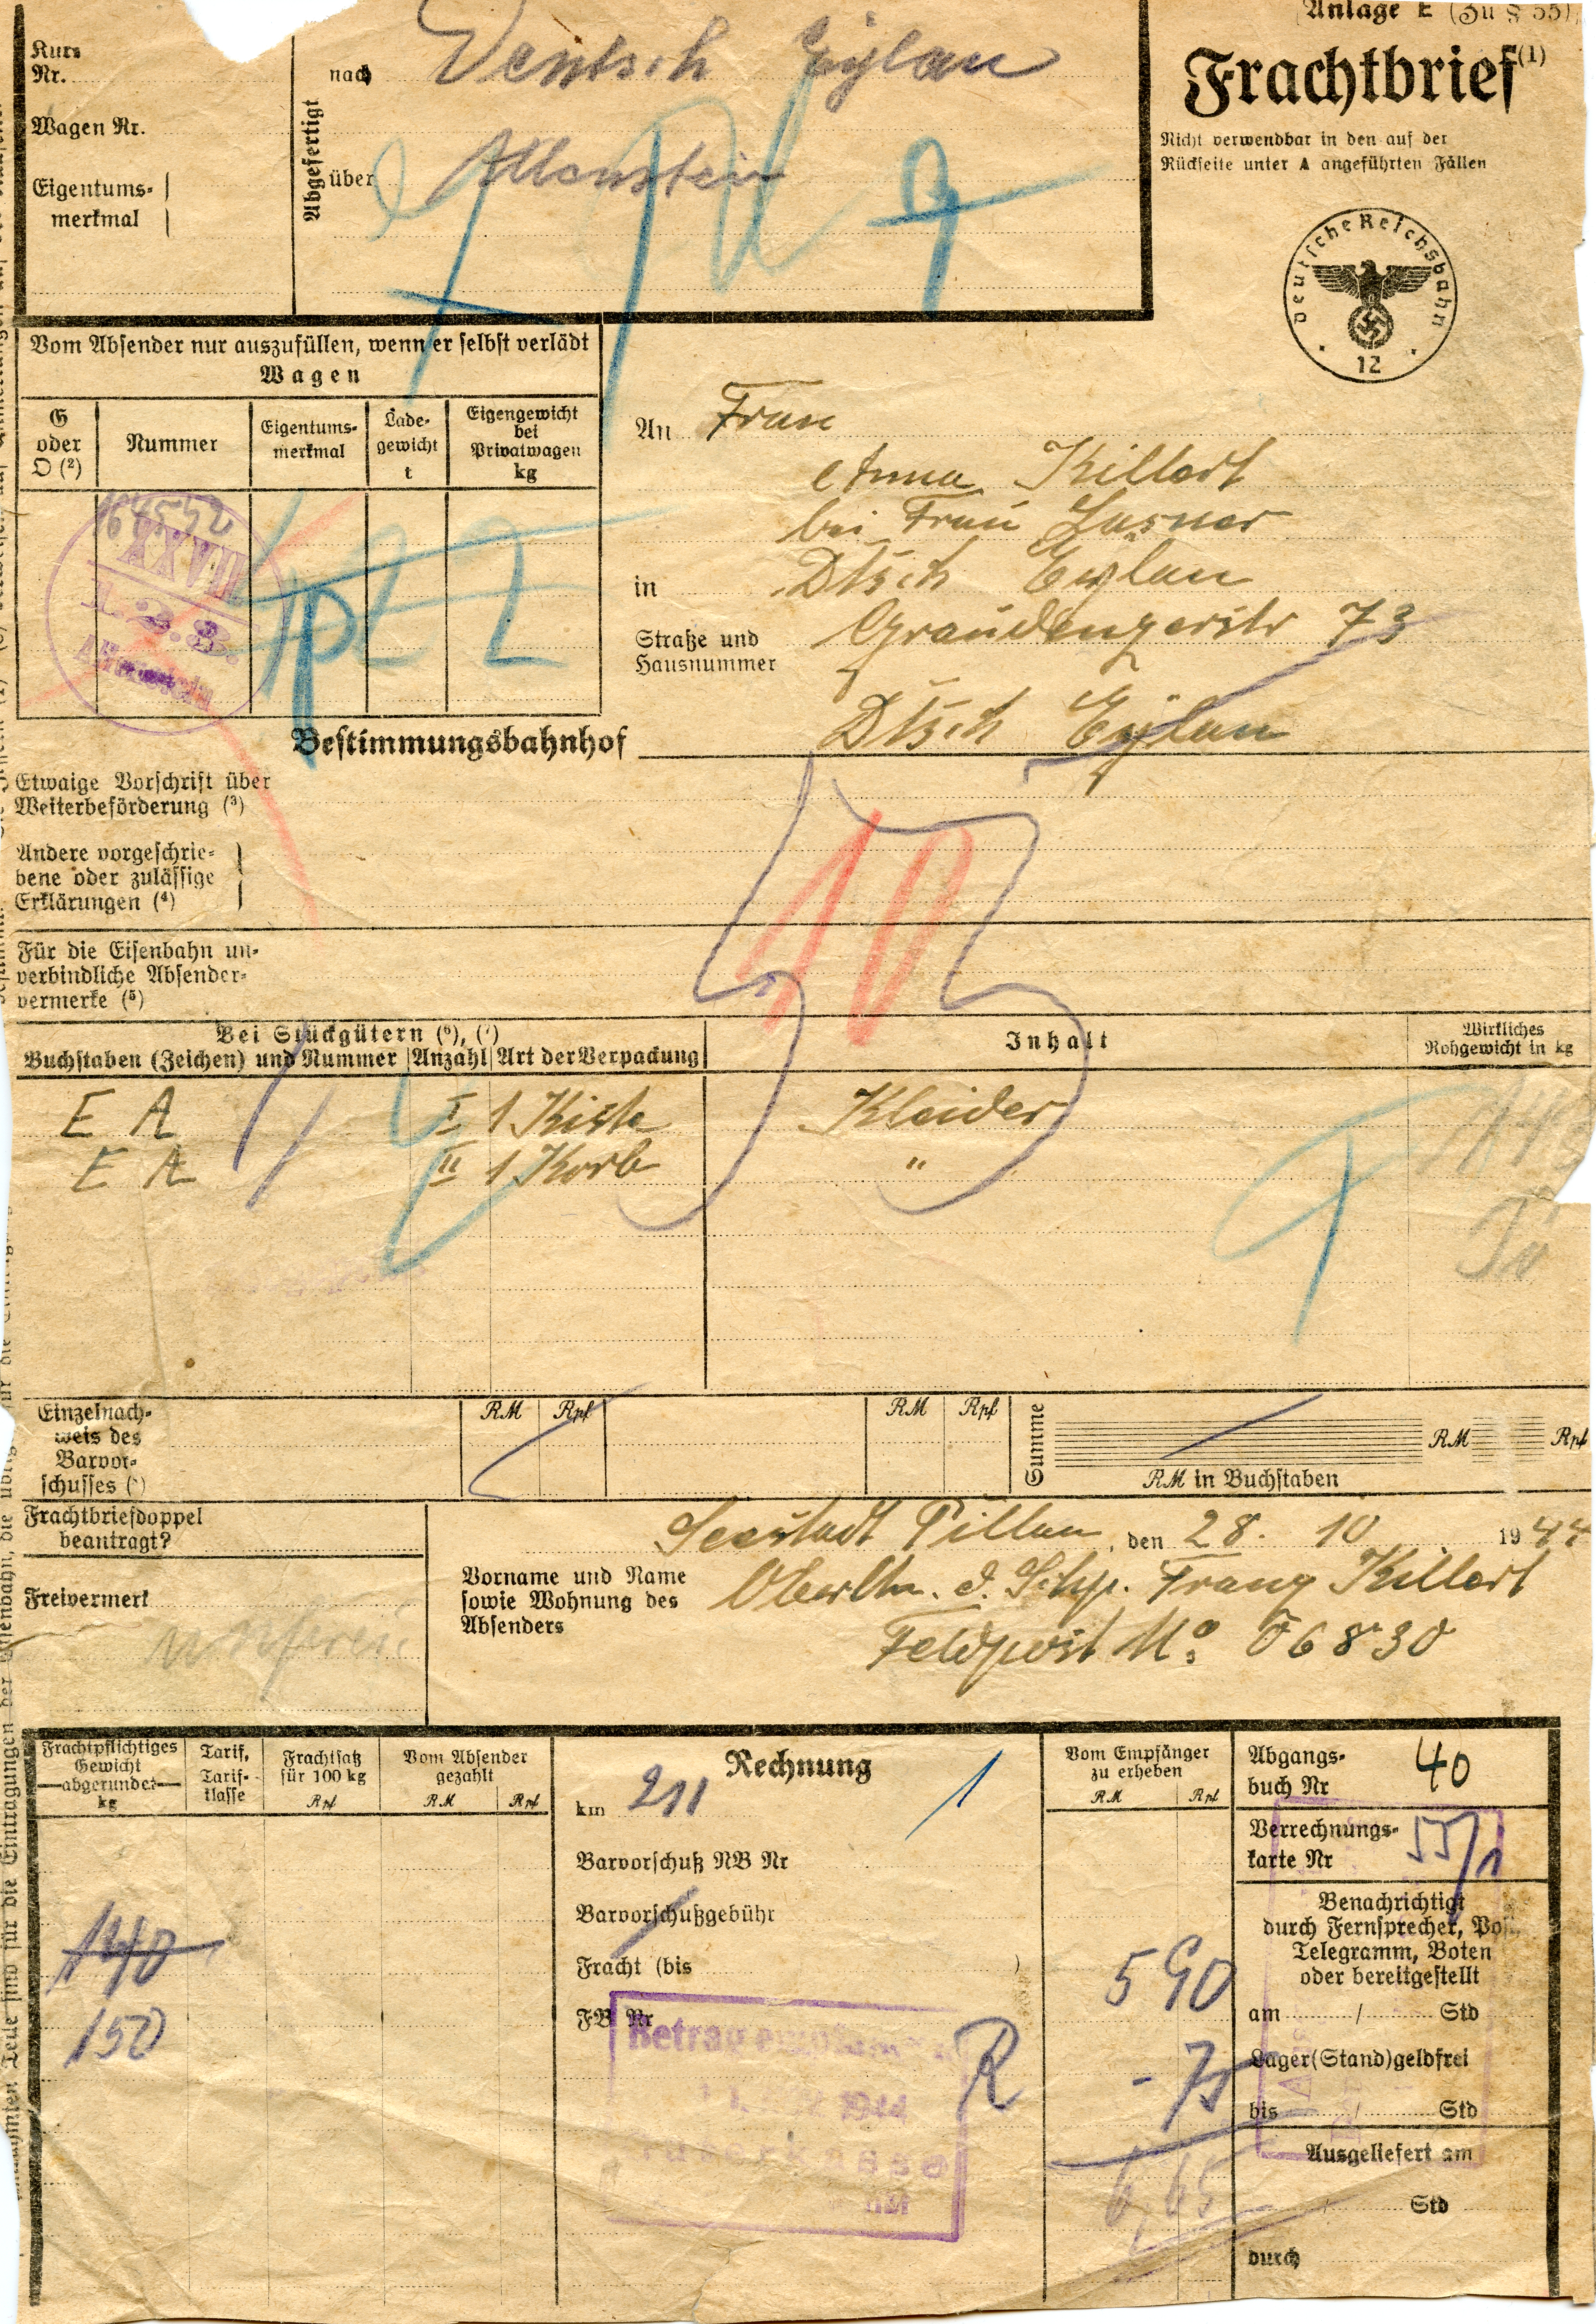 Anlage E (Zu § 55)
Frachtbrief (1)
Nicht verwendbar in den auf der
Rückseite unter A angeführten Fällen
Deutsche Reichsbahn
12
Kurs
Nr.
Wagen Nr.
Eigentums-
merkmal
Abgefertigt
nach Deutsch Eylau
über Allenstein
Vom Absender nur auszufüllen, wenn er selbst verlädt
Wagen
G
oder
O (2)
Nummer
Eigentums-
merkmal
Lade-
gewicht
t
Eigengewicht
bei
Privatwagen
kg
XXVIII
1.2.3.
Allenstein
An Frau
Anna Killert
bei Frau
in Dtsch Eylau
Straße und
Hausnummer
Graudenzerstr 73
Bestimmungsbahnhof Dtsch Eylau
Etwaige Vorschrift über
Weiterbeförderung (3)
Andere vorgeschrie-
bene oder zulässige
Erklärungen (4)
Für die Eisenbahn un-
verbindliche Absender-
vermerke (5)
10
Bei Stückgütern (6), (7)
Buchstaben (Zeichen) und Nummer Anzahl Art der Verpackung
Inhalt
Wirkliches
Rohgewicht in kg
E A I 1 Kiste Kleider
E A II 1 Korb "
Einzelnach-
weis des
Barvor-
schusses
RM Rpf
RM Rpf
Summe
RM Rpf
RM in Buchstaben
Frachtbriefdoppel
beantragt?
Freivermerk
unfrei
Seestadt Pillau, den 28. 10 1944
Vorname und Name
sowie Wohnung des
Absenders
Oberltn. d. Schp. Franz Killert
Feldpost No 06830
Frachtpflichtiges
Gewicht
abgerundet
kg
Tarif,
Tarif-
klasse
Frachtsatz
für 100 kg
Rpf
Vom Absender
gezahlt
RM Rpf
140
150
Rechnung
km 211
1
Barvorschuß NB Nr
Barvorschußgebühr
Fracht (bis )
FB Nr
Betrag
1944
R
Vom Empfänger
zu erheben
RM Rpf
5 90
- 75
6,65
Abgangs-
buch Nr 40
Verrechnungs-
karte Nr 55/1
Benachrichtigt
durch Fernsprecher, Post
Telegramm, Boten
oder bereitgestellt
am / Std
Lager(Stand)geldfrei
bis / Std
Ausgeliefert am
/ Std
durch